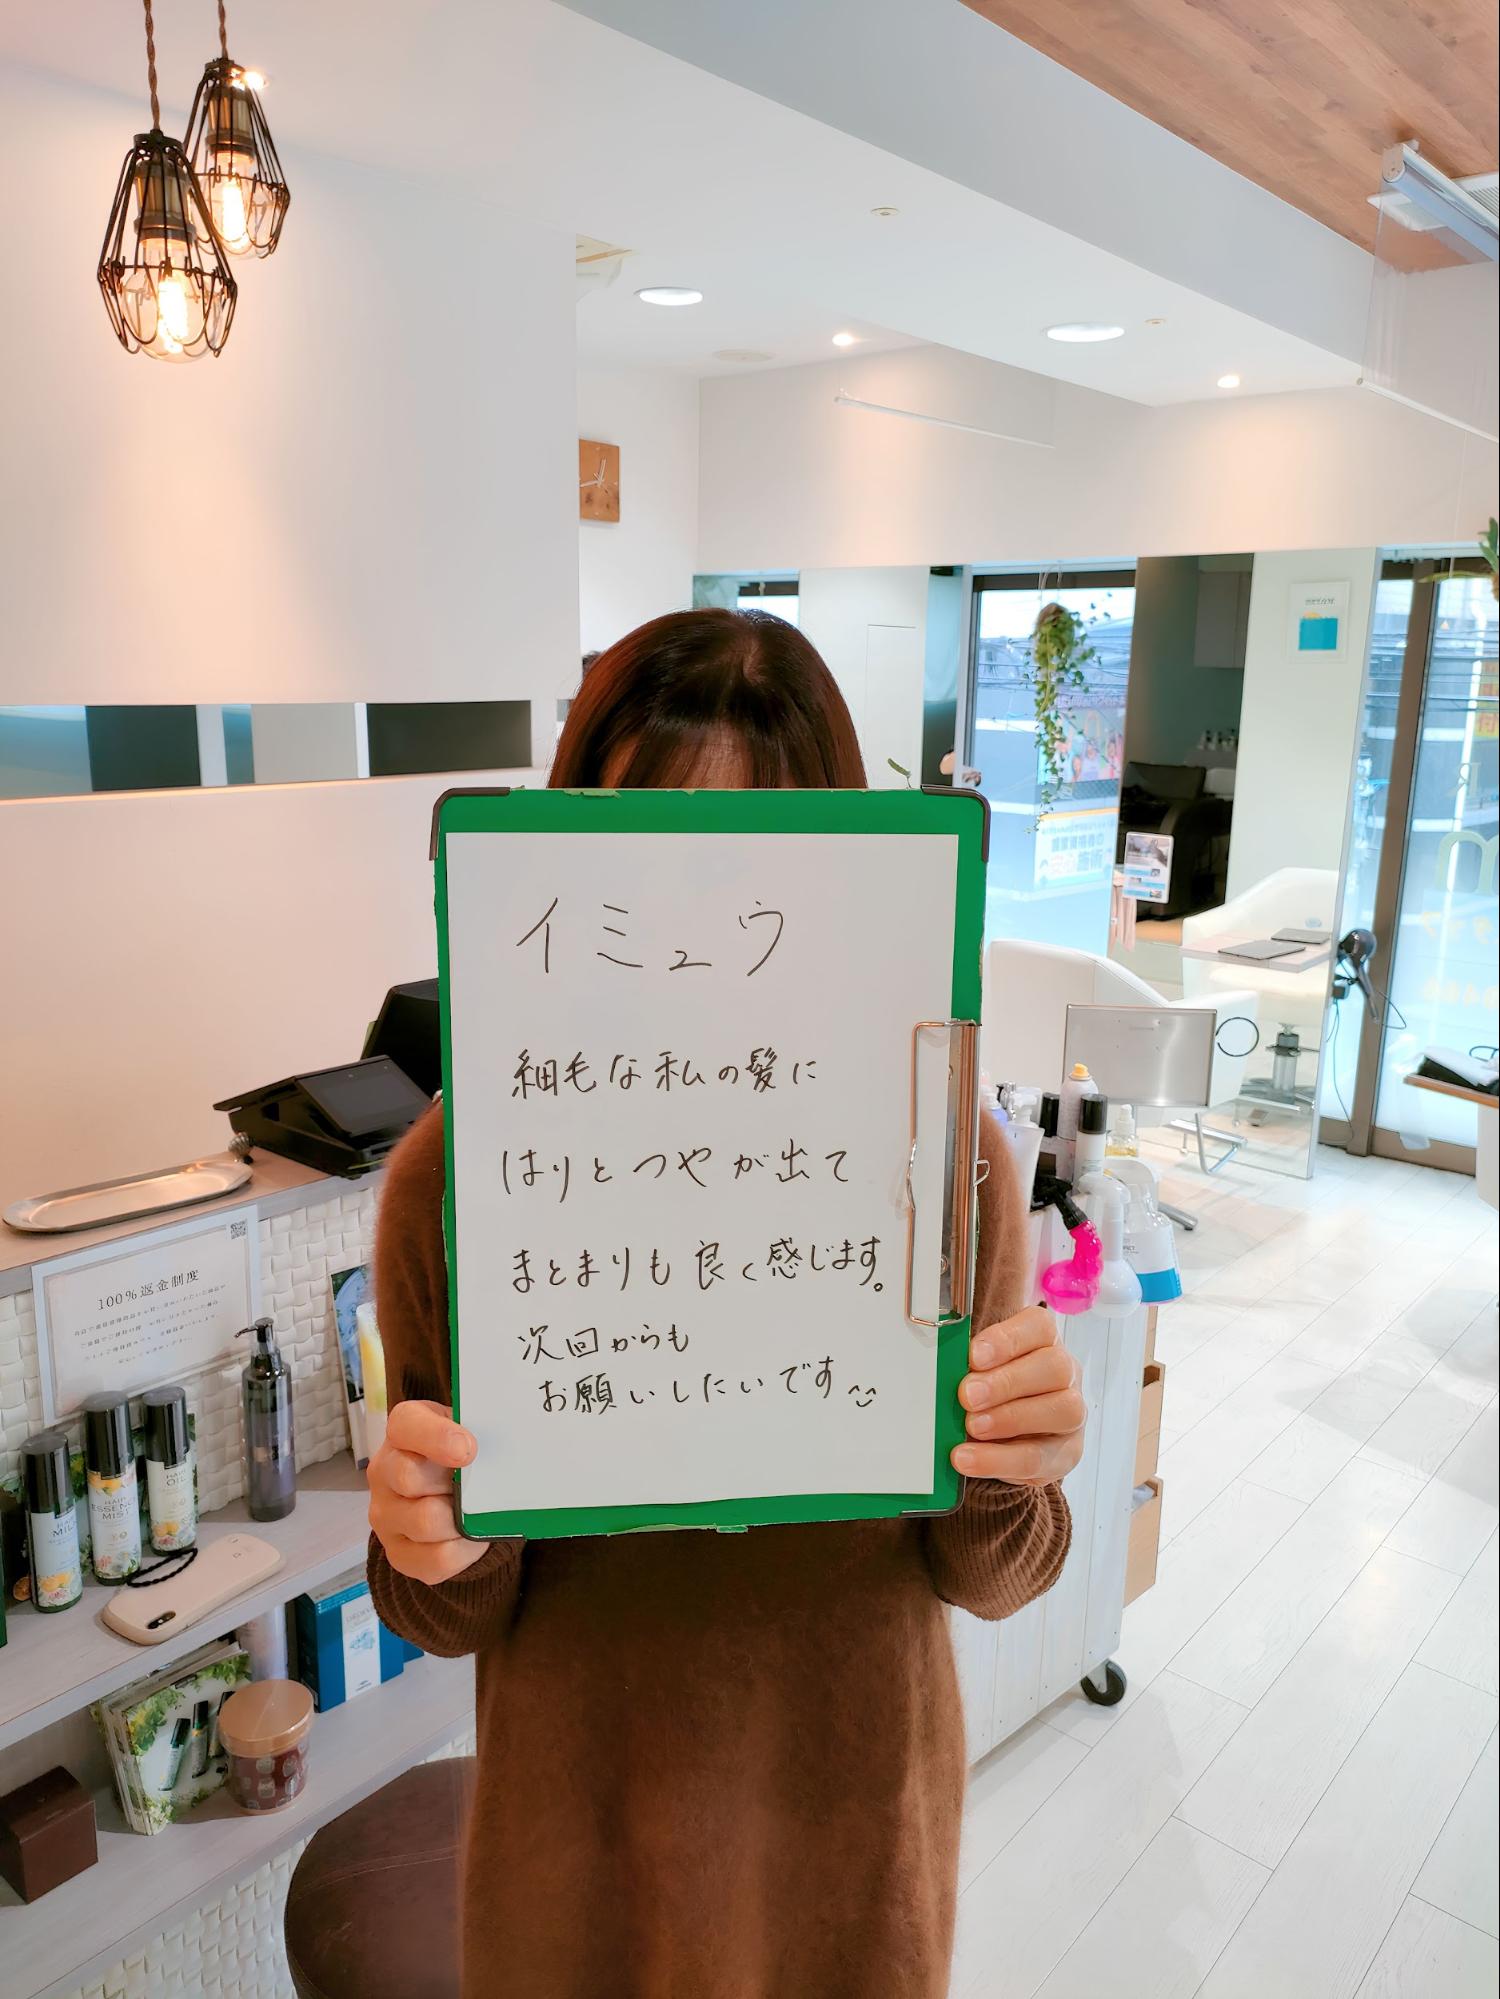 イミュウ
細毛な私の髪に
はりとつやが出て
まとまりも良く感じます。
次回からも
お願いしたいです
100%返金制度
HAIR
MILK
HAIR
ESSENCE
MIST
HAIR
OIL